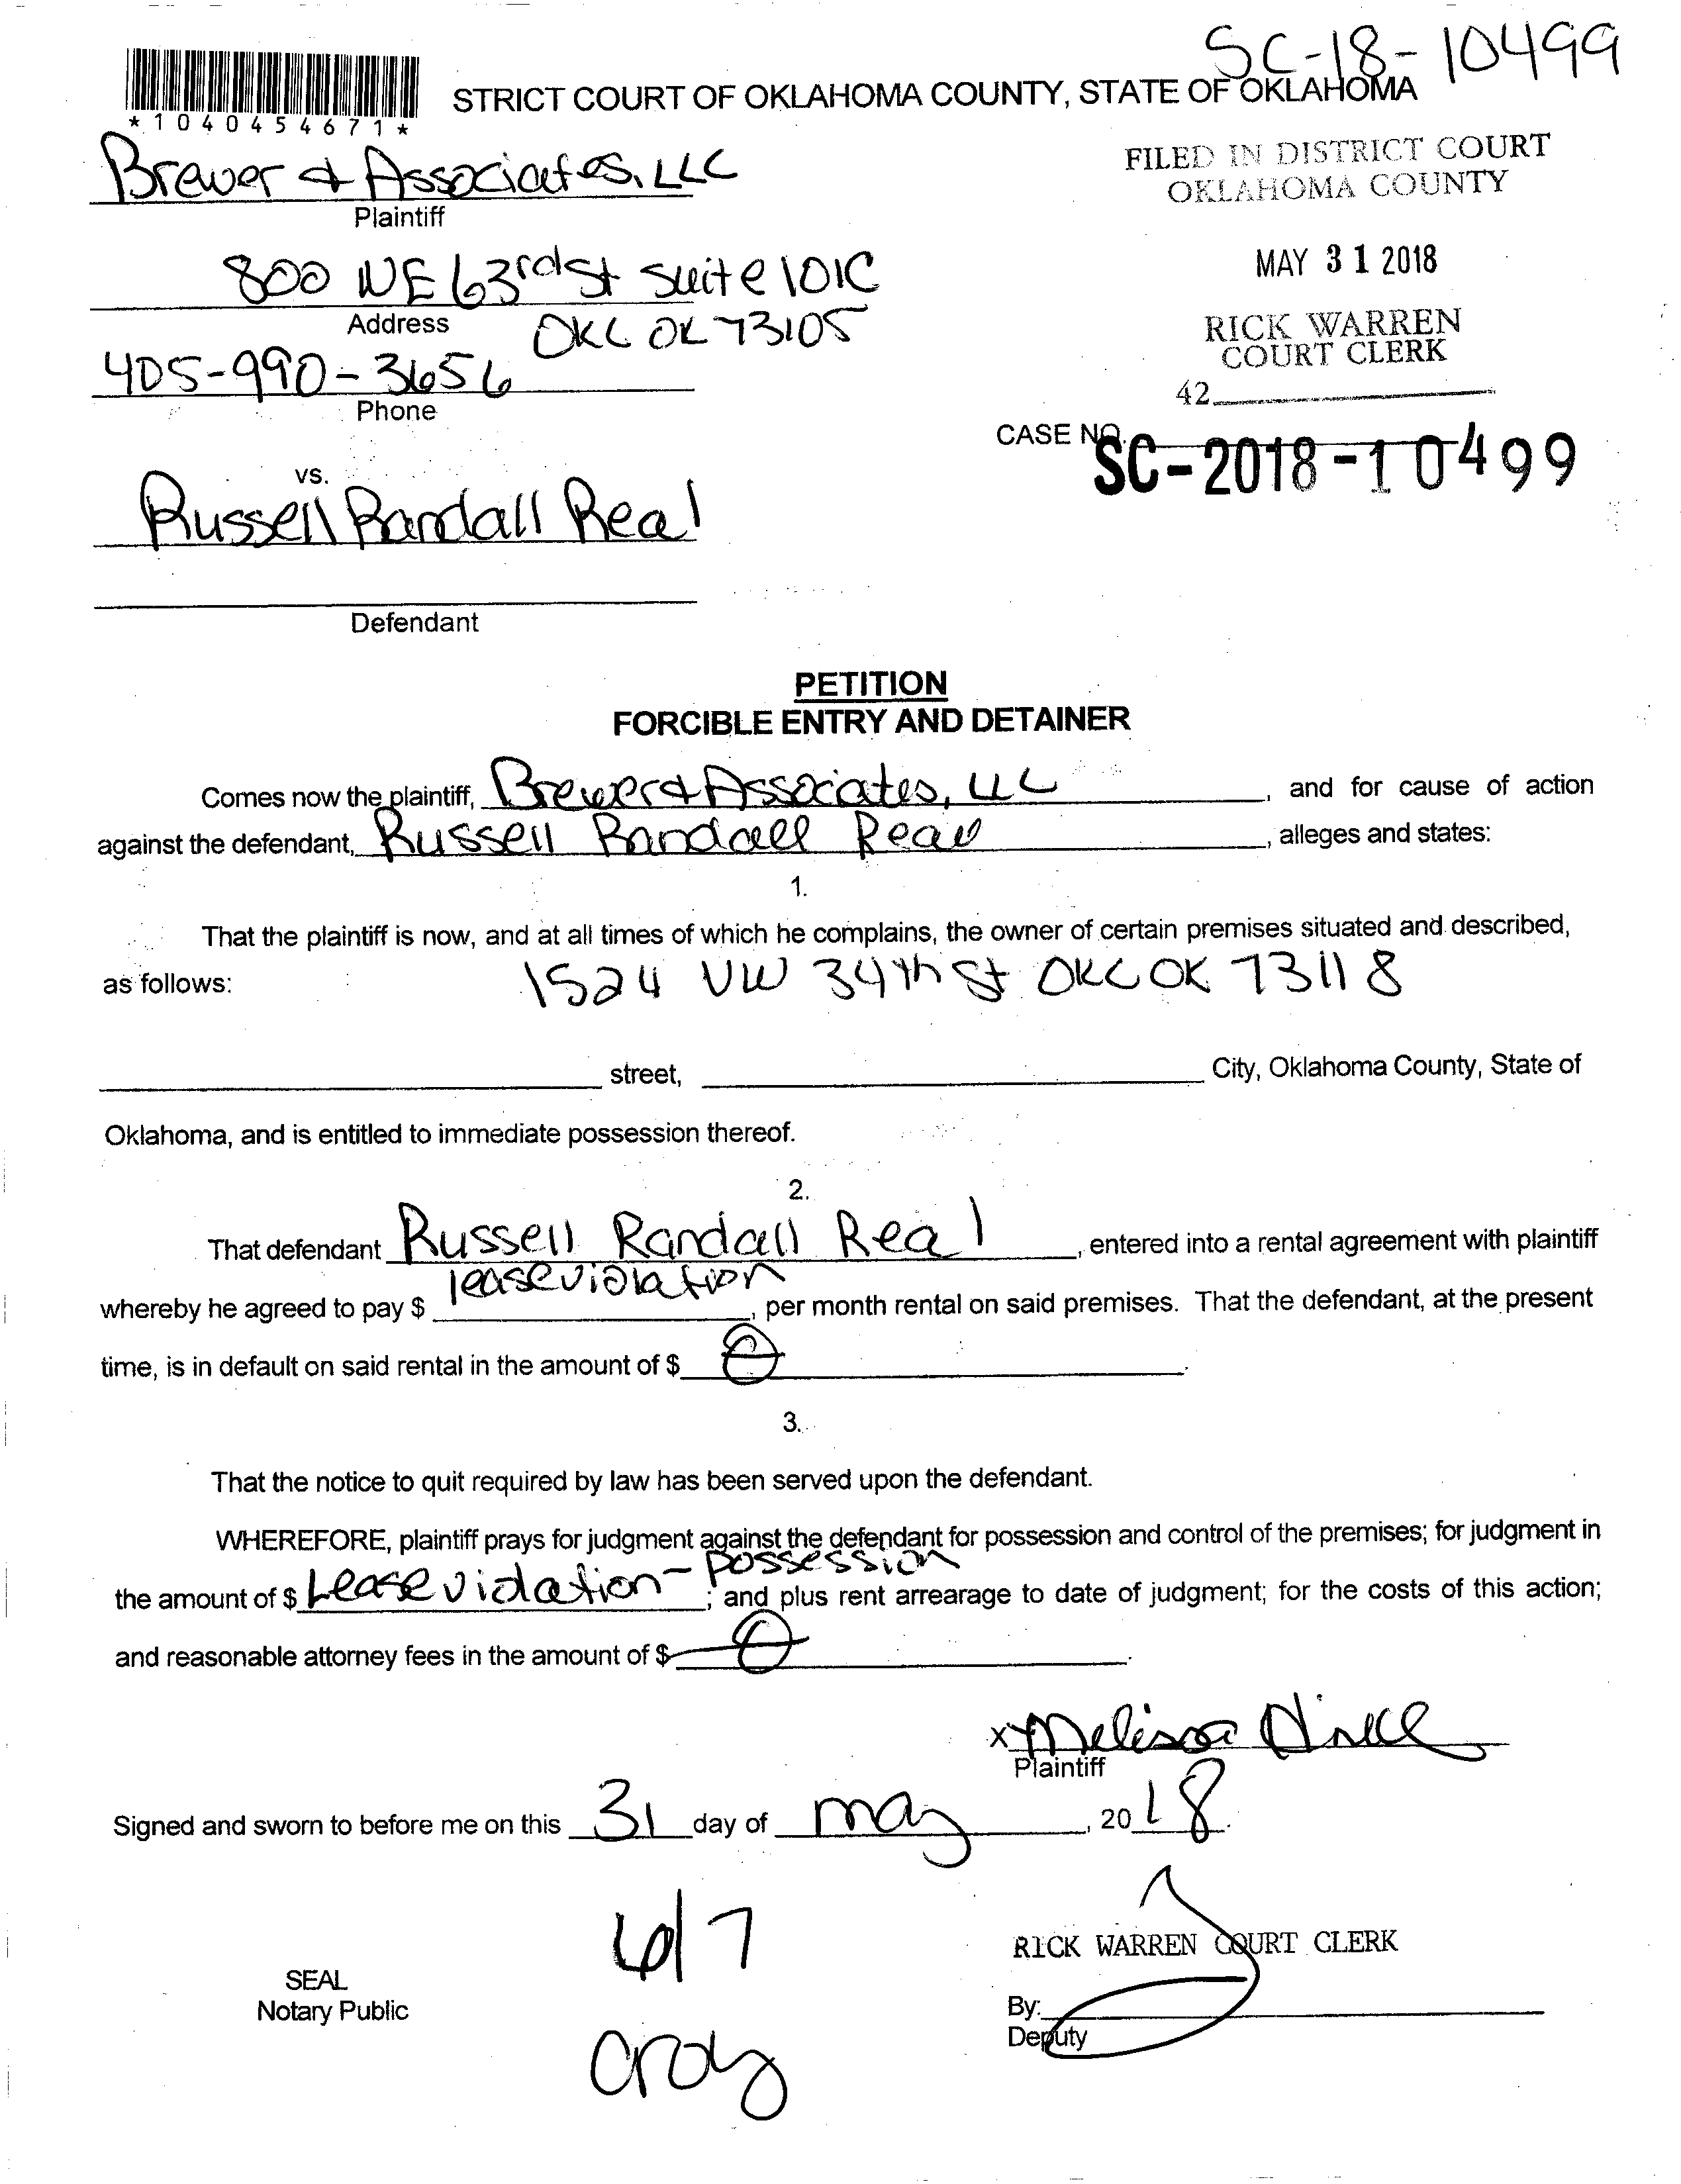 SC-18-10499
STRICT COURT OF OKLAHOMA COUNTY, STATE OF OKLAHOMA
*1040454671*
Brewer & Associates, LLC
Plaintiff
FILED IN DISTRICT COURT
OKLAHOMA COUNTY
800 NE 63rd St Suite 101C
Address
OKC OK 73105
MAY 31 2018
405-990-3656
Phone
RICK WARREN
COURT CLERK
42
CASE NO.
SC-2018-10499
vs.
Russell Randall Real
Defendant
PETITION
FORCIBLE ENTRY AND DETAINER
Comes now the plaintiff, Brewer & Associates, LLC, and for cause of action
against the defendant, Russell Randall Real, alleges and states:
1.
That the plaintiff is now, and at all times of which he complains, the owner of certain premises situated and described,
as follows: 1524 NW 34th St OKC OK 73118
street, City, Oklahoma County, State of
Oklahoma, and is entitled to immediate possession thereof.
2.
That defendant Russell Randall Real, entered into a rental agreement with plaintiff
lease violation
whereby he agreed to pay $, per month rental on said premises. That the defendant, at the present
time, is in default on said rental in the amount of $ 0.
3.
That the notice to quit required by law has been served upon the defendant.
WHEREFORE, plaintiff prays for judgment against the defendant for possession and control of the premises; for judgment in
the amount of $ Lease violation - possession; and plus rent arrearage to date of judgment; for the costs of this action;
and reasonable attorney fees in the amount of $ 0.
x Melissa
Plaintiff
Signed and sworn to before me on this 31 day of may, 2018.
6/7
RICK WARREN COURT CLERK
SEAL
Notary Public
By:
Deputy